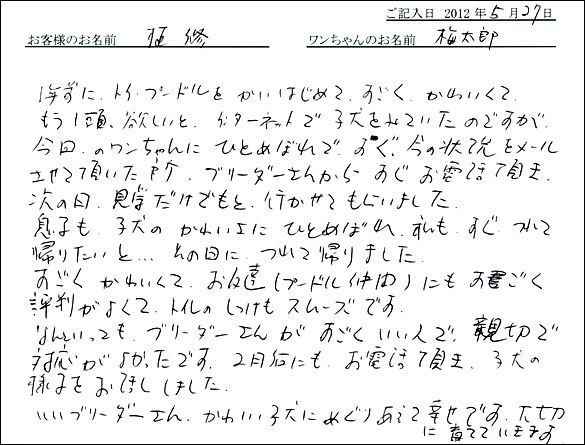 ご記入日 2012 年 5 月 27 日
お客様のお名前 植 修 ワンちゃんのお名前 梅太郎
1年ずに、トイ・プードルを かいはじめて、すごく、かわいくて、
もう1頭、欲しいと、インターネットで 子犬をみていたのですが、
今回、のワンちゃんに ひとめぼれで、すぐ、今の状況をメール
させて頂いた所、ブリーダーさんから すぐ お電話頂き、
次の日、見学だけでもと、行かせてもらいました。
息子も、子犬の かわいさに ひとめぼれ、私も、すぐ、つれて
帰りたいと… その日に、つれて帰りました。
すごく かわいくて、お友達(プードル仲間)にも すごく
評判がよくて、トイレの しつけも スムーズです。
なんといっても、ブリーダーさんが すごくいい人で、親切で
対応が よかったです。2月后にも、お電話頂き、子犬の
様子を お話ししました。
いいブリーダーさん、かわいい子犬に めぐりあえて 幸せです。大切
に 育てていきます